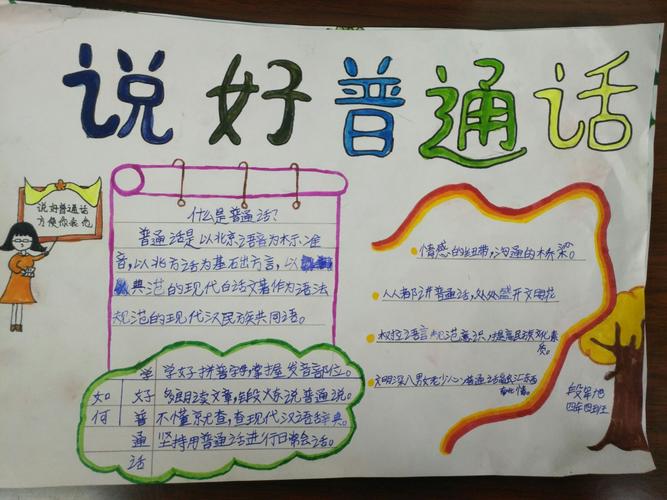 说好普通话
说好普通话
方便你我他
什么是普通话?
普通话是以北京语音为标准
音,以北方话为基石出方言,以
典范的现代白话文著作为语法
规范的现代汉民族共同语。
如何
学好普通话
学好拼音字母,掌握发音部位。
多朗读文章,锻炼说普通说。
不懂就查,查现代汉语话辞典。
坚持用普通话进行日常会话。
情感的纽带,沟通的桥梁。
人人都讲普通话,处处盛开文明花
规范意识,提高民族文化素
质。
文明深入男女老少心,普通话
四年四班